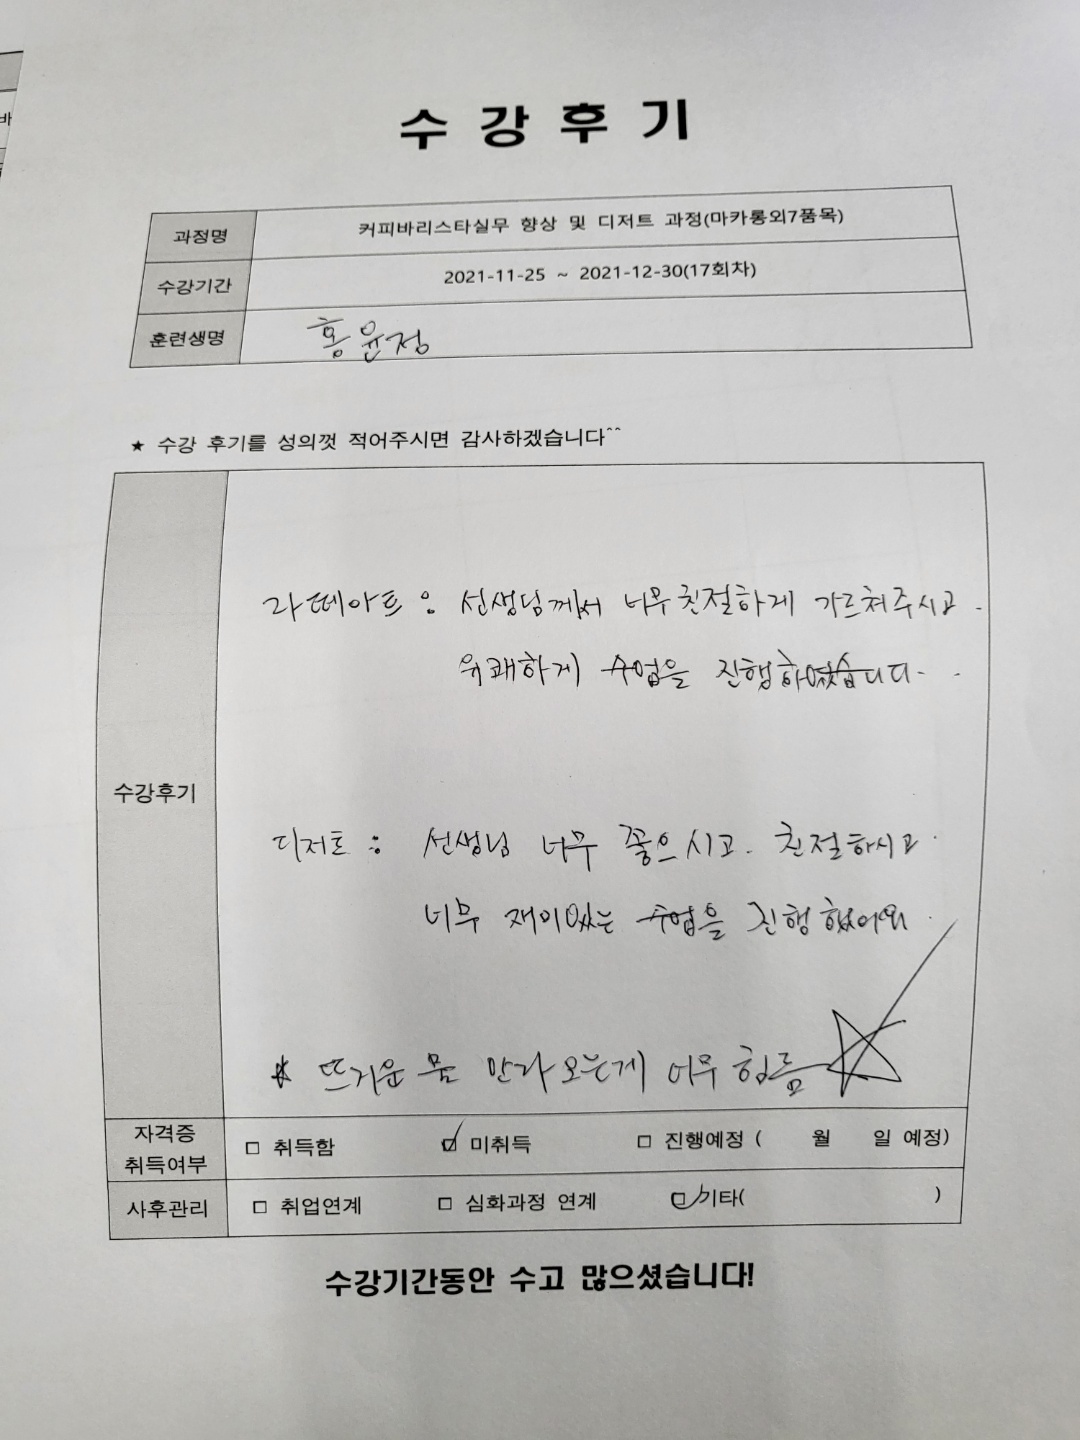 수 강 후 기
과정명 커피바리스타실무 향상 및 디저트 과정(마카롱외7품목)
수강기간 2021-11-25 ~ 2021-12-30(17회차)
훈련생명 홍윤정
★ 수강 후기를 성의껏 적어주시면 감사하겠습니다^^
라떼아트 : 선생님께서 너무 친절하게 가르쳐주시고.
유쾌하게 수업을 진행하였습니다.
수강후기
디저트 : 선생님 너무 좋으시고. 친절하시고.
너무 재미있는 수업을 진행했어요.
* 뜨거운 물 안나오는게 너무 힘듦
자격증 취득여부 □ 취득함 ☑ 미취득 □ 진행예정 ( 월 일 예정)
사후관리 □ 취업연계 □ 심화과정 연계 ☑ 기타( )
수강기간동안 수고 많으셨습니다!